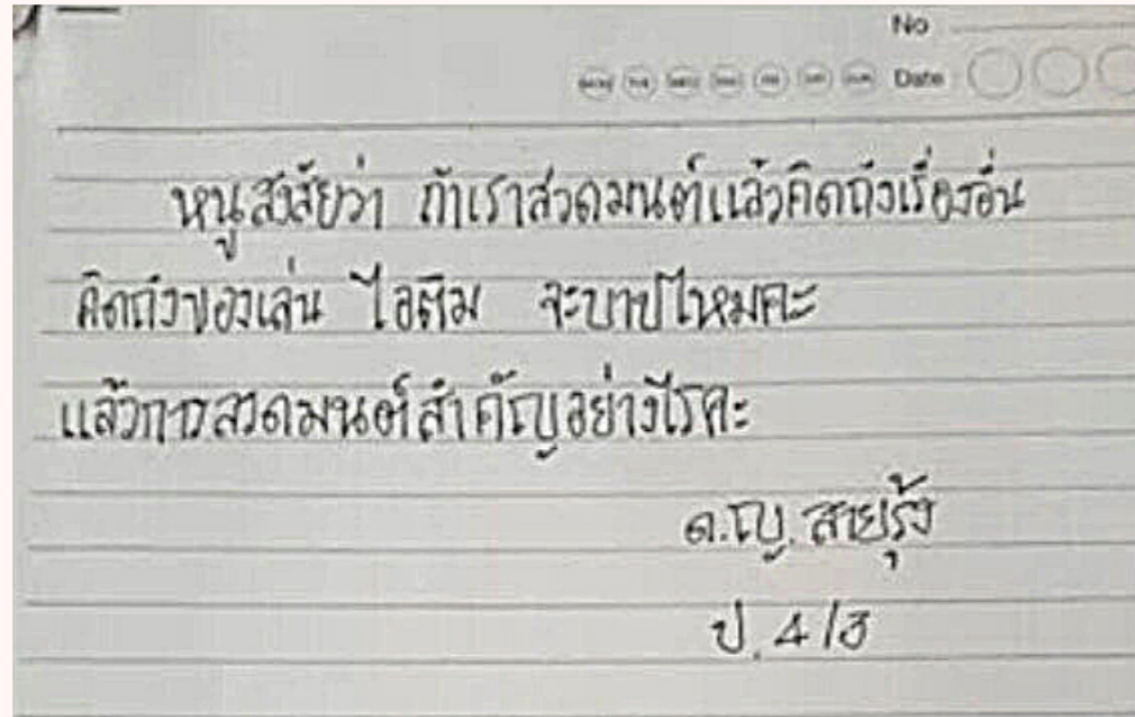 No
Date
หนูสงสัยว่า ถ้าเราสวดมนต์แล้วคิดถึงเรื่องอื่น
คิดถึงของเล่น ไอติม จะบาปไหมคะ
แล้วการสวดมนต์สำคัญอย่างไรคะ
ด.ญ. สายรุ้ง
ป. 4/3